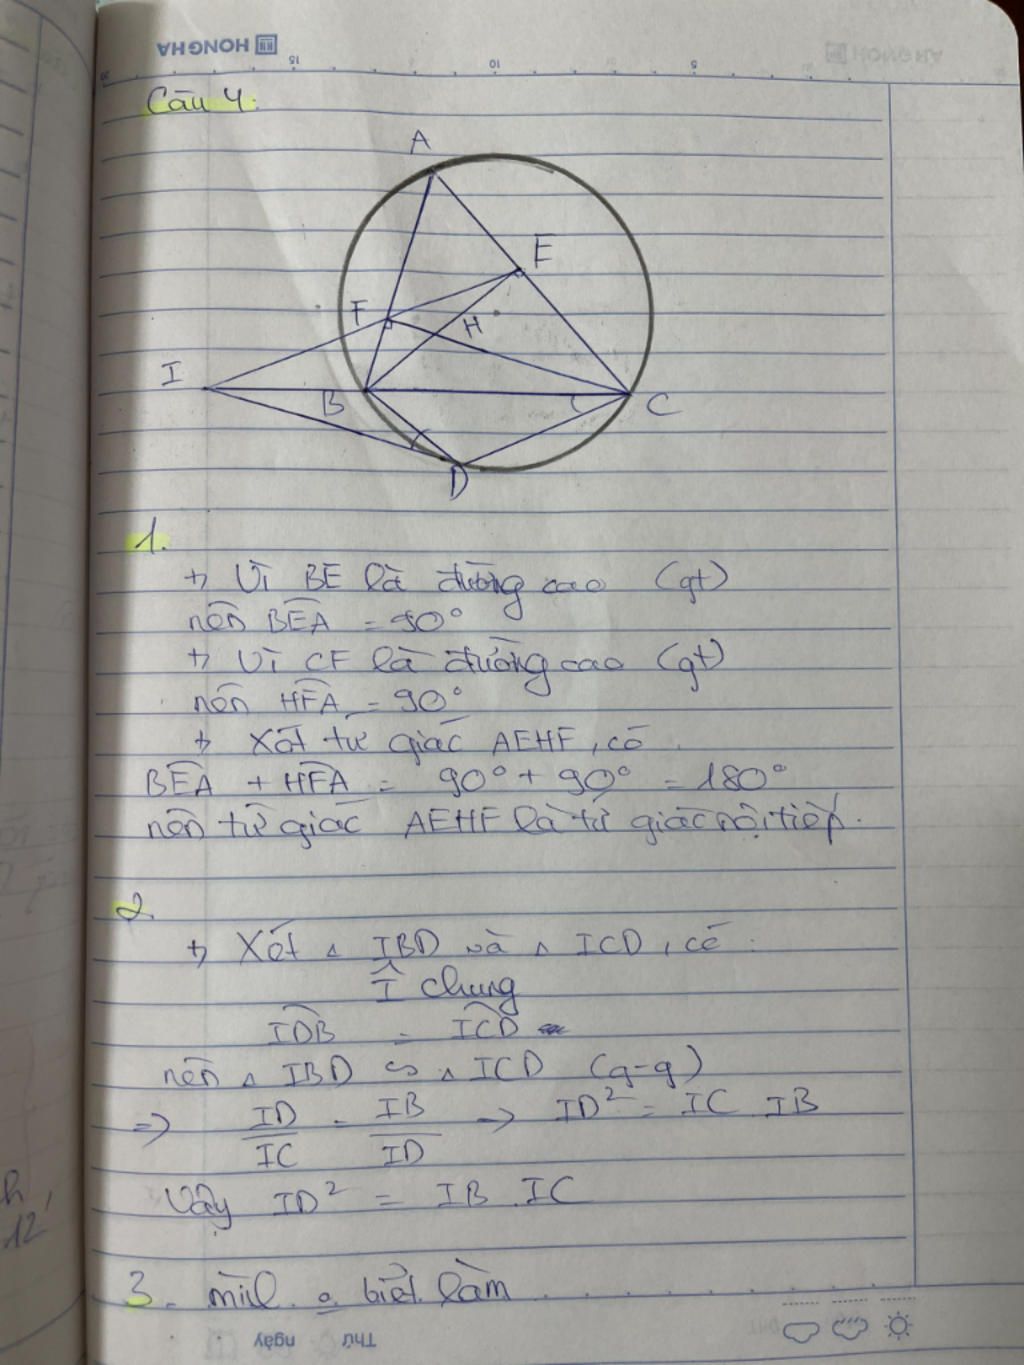 HONG HA
15 10 5
Câu 4:
A
E
F
H
I
B
C
D
1.
+) Vì BE là đường cao (gt)
nên BEA = 90°
+) Vì CF là đường cao (gt)
nên HFA = 90°
+) Xét tứ giác AEHF, có
BEA + HFA = 90° + 90° = 180°
nên tứ giác AEHF là tứ giác nội tiếp.
2.
+) Xét △ IBD và △ ICD, có:
Î chung
IDB = ICD
nên △ IBD ∽ △ ICD (g-g)
=> ID/IC = IB/ID -> ID² = IC.IB
Vậy ID² = IB.IC
3. biết làm
Thứ ngày